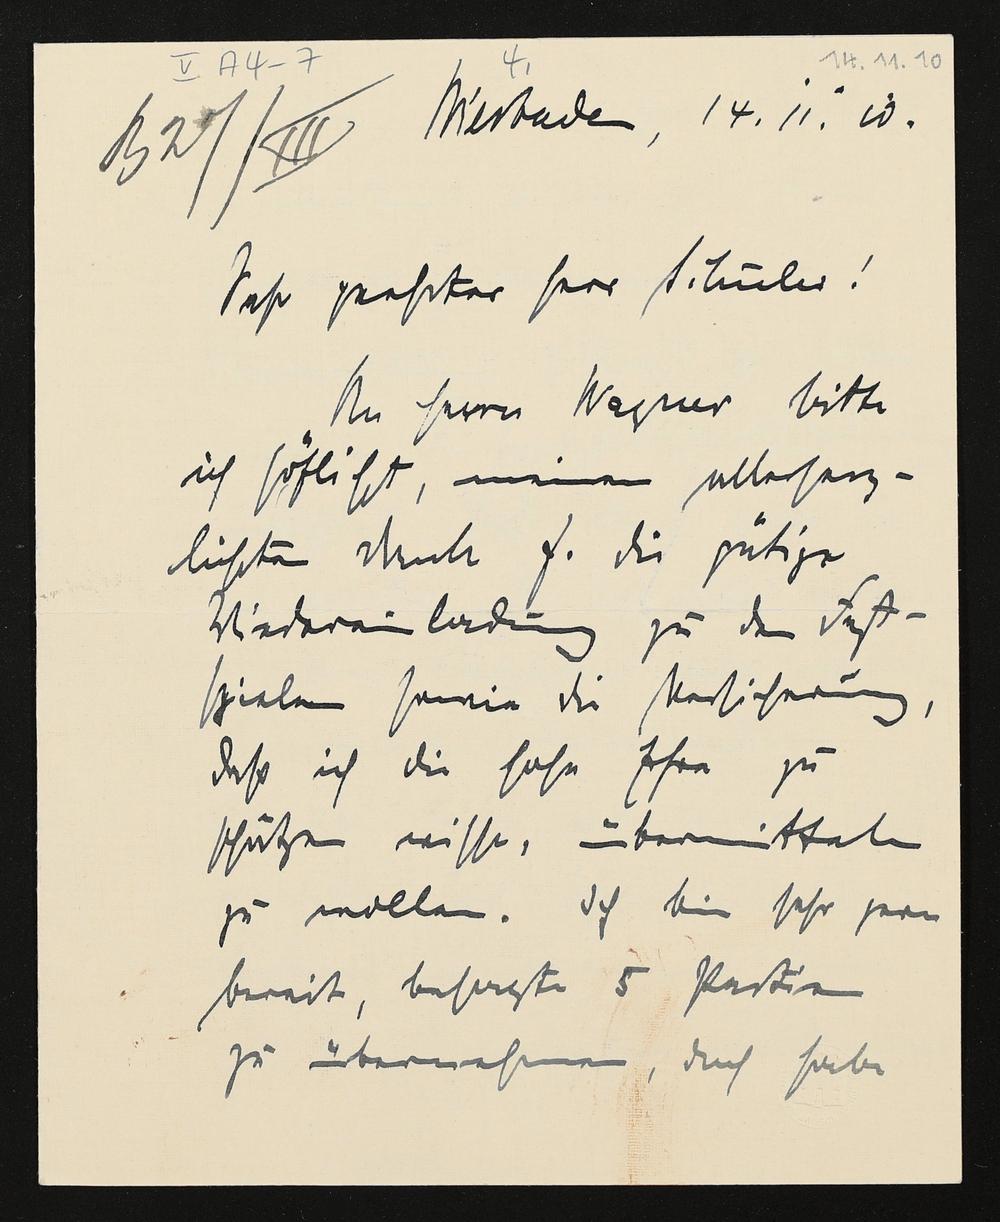 V A4-7 4, 14.11.10
B 27/VIII
Wiesbaden, 14. 11. 10.
Sehr geehrter Herr Schuler!
An Herrn Wagner bitte
ich höflichst, meinen allerherz-
lichsten Dank f. die gütige
Wiedereinladung zu den Fest-
spielen sowie die Versicherung,
daß ich die hohe Ehre zu
schätzen wisse, übermitteln
zu wollen. Ich bin sehr gern
bereit, besagte 5 Partien
zu übernehmen, doch habe